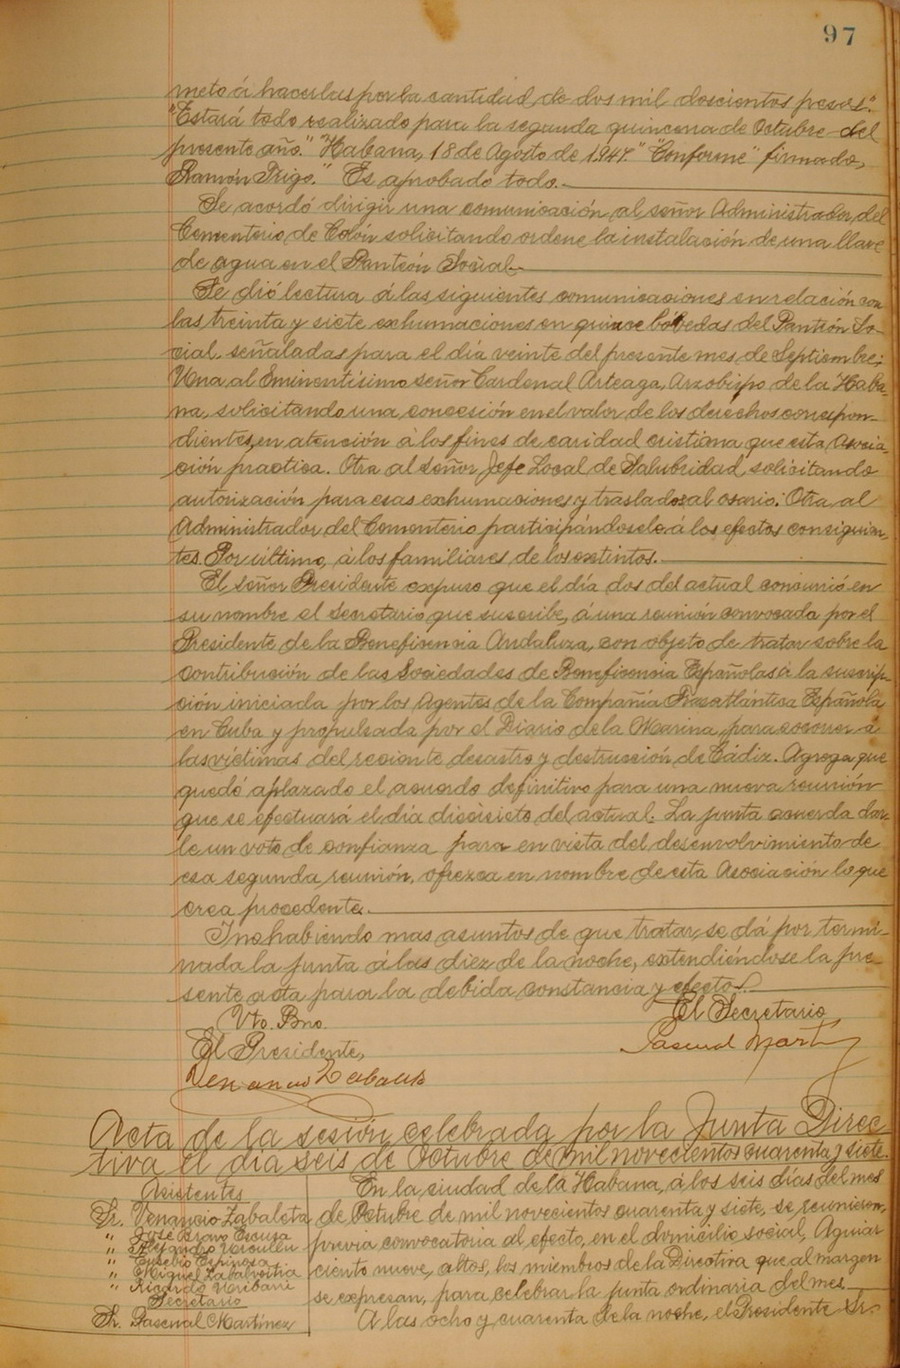 97
meto á hacerlas por la cantidad de dos mil doscientos pesos".
"Estará todo realizado para la segunda quincena de Octubre del
presente año." "Habana, 18 de Agosto de 1947." "Conforme" firmado,
Ramón Trigo." Es aprobado todo.
Se acordó dirigir una comunicación al señor Administrador del
Cementerio de Colón solicitando ordene la instalación de una llave
de agua en el Panteón Social.
Se dió lectura á las siguientes comunicaciones en relación con
las treinta y siete exhumaciones en quince bóvedas del Panteón So-
cial, señaladas para el día veinte del presente mes de Septiembre:
Una al Eminentísimo señor Cardenal Arteaga, Arzobispo de la Haba-
na, solicitando una concesión en el valor de los derechos correspon-
dientes, en atención á los fines de caridad cristiana que esta Asocia-
ción practica. Otra al señor Jefe Local de Salubridad solicitando
autorización para esas exhumaciones y traslados al osario: Otra al
Administrador del Cementerio participándoselo á los efectos consiguien-
tes. Por último, á los familiares de los extintos.
El señor Presidente expuso que el día dos del actual concurrió en
su nombre el Secretario que suscribe, á una reunión convocada por el
Presidente de la Beneficencia Andaluza, con objeto de tratar sobre la
contribución de las Sociedades de Beneficencia Españolas á la suscrip-
ción iniciada por los Agentes de la Compañía Trasatlántica Española
en Cuba y propulsada por el Diario de la Marina, para socorrer á
las víctimas del reciente desastre y destrucción de Cádiz. Agrega que
quedó aplazado el acuerdo definitivo para una nueva reunión
que se efectuará el día diecisiete del actual. La junta acuerda dar-
le un voto de confianza para en vista del desenvolvimiento de
esa segunda reunión, ofrezca en nombre de esta Asociación lo que
crea procedente.
I no habiendo mas asuntos de que tratar, se dá por termi-
nada la junta á las diez de la noche, extendiéndose la pre-
sente acta para la debida constancia y efectos.
Vto. Bno.
El Secretario
El Presidente,
Pascual Martí
Venancio Zabaleta
Acta de la sesión celebrada por la Junta Direc-
tiva el día seis de Octubre de mil novecientos cuarenta y siete.
Asistentes
Sr. Venancio Zabaleta
" José Bravo
" Alejandro
" Eusebio Espinosa
" Miguel
" Ricardo Uribarri
Secretario
Sr. Pascual Martínez
En la ciudad de la Habana, á los seis días del mes
de Octubre de mil novecientos cuarenta y siete, se reunieron,
previa convocatoria al efecto, en el domicilio social, Aguiar
ciento nueve, altos, los miembros de la Directiva que al margen
se expresan, para celebrar la junta ordinaria del mes.
A las ocho y cuarenta de la noche, el Presidente Sr.